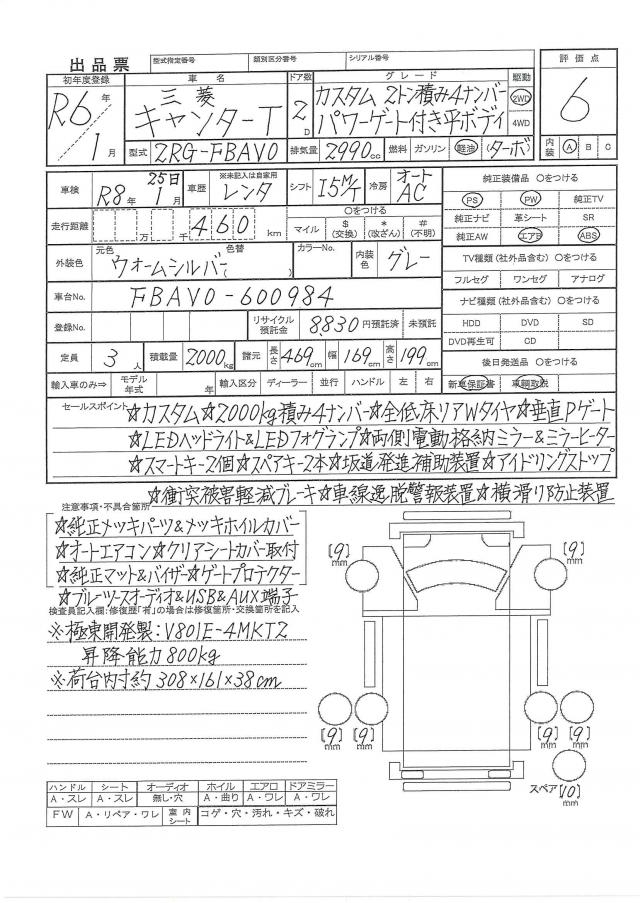 出品票
型式指定番号 類別区分番号 シリアル番号
評価点
6
内装 A B C
初年度登録 車名 ドア数 グレード 駆動
R6年 1月
三菱
キャンターT
2D
カスタム 2トン積み4ナンバー
パワーゲート付き平ボディ
2WD
4WD
型式 2RG-FBAV0 排気量 2990cc 燃料 ガソリン 軽油 (ターボ)
車検 R8年 25日 1月 車歴 ※未記入は自家用 レンタ シフト I5M/T 冷房 オートAC
走行距離 万 千 460 km マイル $(交換) *(改ざん) #(不明)
〇をつける
外装色 元色 ウォームシルバー 色替 ( ) カラーNo. 内装色 グレー
車台No. FBAV0-600984
登録No. リサイクル預託金 8830円預託済 未預託
定員 3人 積載量 2000kg 諸元 長さ 469cm 幅 169cm 高さ 199cm
輸入車のみ⇒ モデル年式 年 輸入区分 ディーラー 並行 ハンドル 左 右
純正装備品 〇をつける
PS PW 純正TV
純正ナビ 革シート SR
純正AW エアB ABS
TV種類(社外品含む)〇をつける
フルセグ ワンセグ アナログ
ナビ種類(社外品含む)〇をつける
HDD DVD SD
DVD再生可 CD
後日発送品 〇をつける
新車保証書 車輌取説
セールスポイント ☆カスタム☆2000kg積み4ナンバー☆全低床リアWタイヤ☆垂直Pゲート
☆LEDヘッドライト&LEDフォグランプ☆両側電動格納ミラー&ミラーヒーター
☆スマートキー2個☆スペアキー2本☆坂道発進補助装置☆アイドリングストップ
☆衝突被害軽減ブレーキ☆車線逸脱警報装置☆横滑り防止装置
注意事項・不具合箇所
☆純正メッキパーツ&メッキホイルカバー
☆オートエアコン☆クリアシートカバー取付
☆純正マット&バイザー☆ゲートプロテクター
☆ブルーツースオーディオ&USB&AUX端子
検査員記入欄:修復歴「有」の場合は修復箇所・交換箇所を記入
※極東開発製:V801E-4MKTZ
昇降能力800kg
※荷台内寸約308×161×38cm
[9]mm [9]mm
[9]mm [9]mm [9]mm [9]mm
スペア [10]mm
ハンドル シート オーディオ ホイル エアロ ドアミラー
A・スレ A・スレ 無し・穴 A・曲り A・ワレ A・ワレ
FW A・リペア・ワレ 室内シート コゲ・穴・汚れ・キズ・破れ